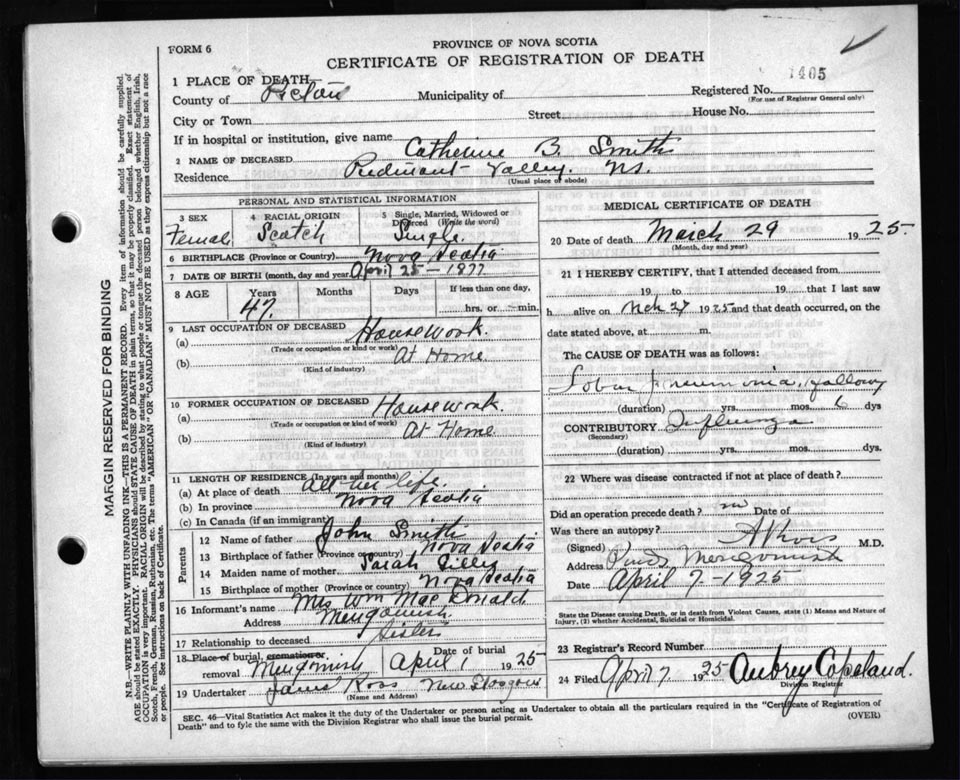 FORM 6
PROVINCE OF NOVA SCOTIA
CERTIFICATE OF REGISTRATION OF DEATH
1405
1 PLACE OF DEATH—
County of Pictou Municipality of Registered No.
(For use of Registrar General only)
City or Town Street House No.
If in hospital or institution, give name
2 NAME OF DECEASED Catherine B. Smith
Residence Piedmont Valley. N.S.
(Usual place of abode)
PERSONAL AND STATISTICAL INFORMATION
3 SEX Female
4 RACIAL ORIGIN Scotch
5 Single, Married, Widowed or Divorced (Write the word) Single.
6 BIRTHPLACE (Province or Country) Nova Scotia
7 DATE OF BIRTH (month, day and year) April 25 – 1877
8 AGE Years Months Days If less than one day,
47. hrs. or min.
9 LAST OCCUPATION OF DECEASED
(a) Housework.
(Trade or occupation or kind or work)
(b) At Home
(Kind of industry)
10 FORMER OCCUPATION OF DECEASED
(a) Housework.
(Trade or occupation or kind of work)
(b) At Home
(Kind of Industry)
11 LENGTH OF RESIDENCE (In years and months)
(a) At place of death All her life.
(b) In province Nova Scotia
(c) In Canada (if an immigrant)
Parents
12 Name of father John Smith
13 Birthplace of father (Province or country) Nova Scotia
14 Maiden name of mother Sarah
15 Birthplace of mother (Province or country) Nova Scotia
16 Informant's name Mrs Wm MacDonald
Address Merigomish
17 Relationship to deceased Sister
18 Place of burial, cremation or removal Merigomish Date of burial April 1 1925
19 Undertaker James Ross New Glasgow
(Name and Address)
MEDICAL CERTIFICATE OF DEATH
20 Date of death March 29 1925
(Month, day and year)
21 I HEREBY CERTIFY, that I attended deceased from
19 to 19 that I last saw
h alive on Mch 27 1925 and that death occurred, on the
date stated above, at m.
The CAUSE OF DEATH was as follows:
Lobar pneumonia,
(duration) yrs. mos. 6 dys
CONTRIBUTORY Influenza
(Secondary)
(duration) yrs. mos. dys.
22 Where was disease contracted if not at place of death?
Did an operation precede death? no Date of
Was there an autopsy?
(Signed) M.D.
Address Merigomish
Date April 7 – 1925
State the Disease causing Death, or in death from Violent Causes, state (1) Means and Nature of
Injury, (2) whether Accidental, Suicidal or Homicidal.
23 Registrar's Record Number
24 Filed April 7 1925 Aubrey Copeland.
Division Registrar
SEC. 46—Vital Statistics Act makes it the duty of the Undertaker or person acting as Undertaker to obtain all the particulars required in the "Certificate of Registration of
Death" and to fyle the same with the Division Registrar who shall issue the burial permit.
(OVER)
MARGIN RESERVED FOR BINDING
N.B.—WRITE PLAINLY WITH UNFADING INK—THIS IS A PERMANENT RECORD. Every item of information should be carefully supplied.
AGE should be stated EXACTLY. PHYSICIANS should STATE CAUSE OF DEATH in plain terms, so that it may be properly classified. Exact statement of
OCCUPATION is very important. RACIAL ORIGIN will be described by stating to what people or tongue the deceased person belonged, whether English, Irish,
Scotch, French, German, Russian, Ruthenian, etc. The terms "AMERICAN" or "CANADIAN" MUST NOT BE USED as they express citizenship but not a race
or people. See instructions on back of Certificate.